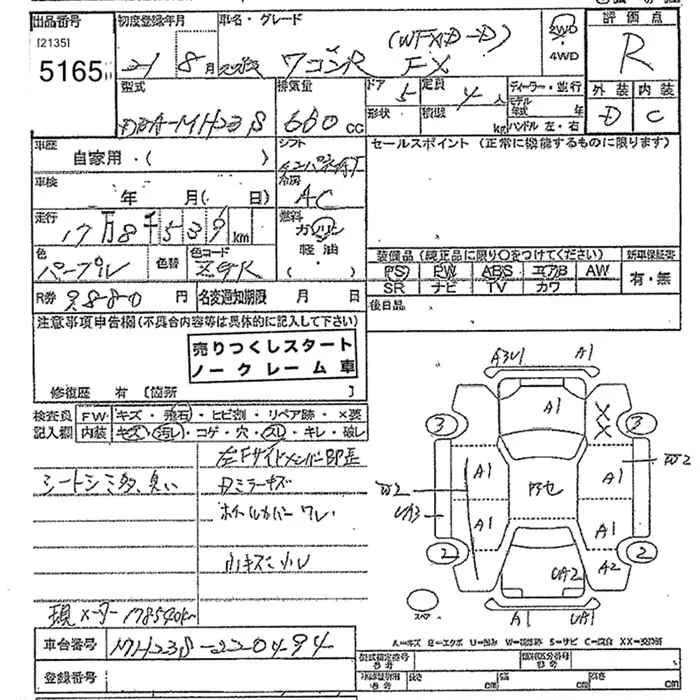 出品番号 初度登録年月 車名・グレード 評価点
[2135]
5165 21 8月 スズキ ワゴンR FX 2WD・4WD R
型式 排気量 ドア 5 定員 4人 ディーラー・並行 外装 内装
DBA-MH23S 660cc 形状 積載 kg モデル年式 年 ハンドル 左・右 D C
車歴 自家用・( ) シフト セールスポイント (正常に機能するものに限ります)
車検 年 月( 日) 冷房 AC
走行 17万8千539km 燃料 ガソリン 軽油 ・( )
色 パープル 色替 色コード ZGR
装備品(純正品に限り○をつけてください) 新車保証書
PS PW ABS エアB AW 有・無
SR ナビ TV カワ
R券 9880円 名変通知期限 月 日 後日品
注意事項申告欄(不具合内容等は具体的に記入して下さい)
売りつくしスタート
ノークレーム車
修復歴 有 [箇所 ]
検査員 FW キズ・飛石・ヒビ割・リペア跡・×要
記入欄 内装 キズ・汚れ・コゲ・穴・スレ・キレ・破レ
左Fサイドメンバー即歪
シートシミ多、臭い
Dミラーキズ
ホイルカバーワレ
小キズ凹凸
現メーター178540k
A3U1 A1
A1 X X
3 3
A1 A1 W2
W2 UA3
A1 A1
2 2
UA2 A2
スペア A1 UA1
A=キズ E=エクボ U=凹み W=補修跡 S=サビ C=腐食 XX=交換済
車台番号 MH23S-220494
型式指定番号 類別区分番号
登録番号
長さ cm 幅 cm 高さ cm